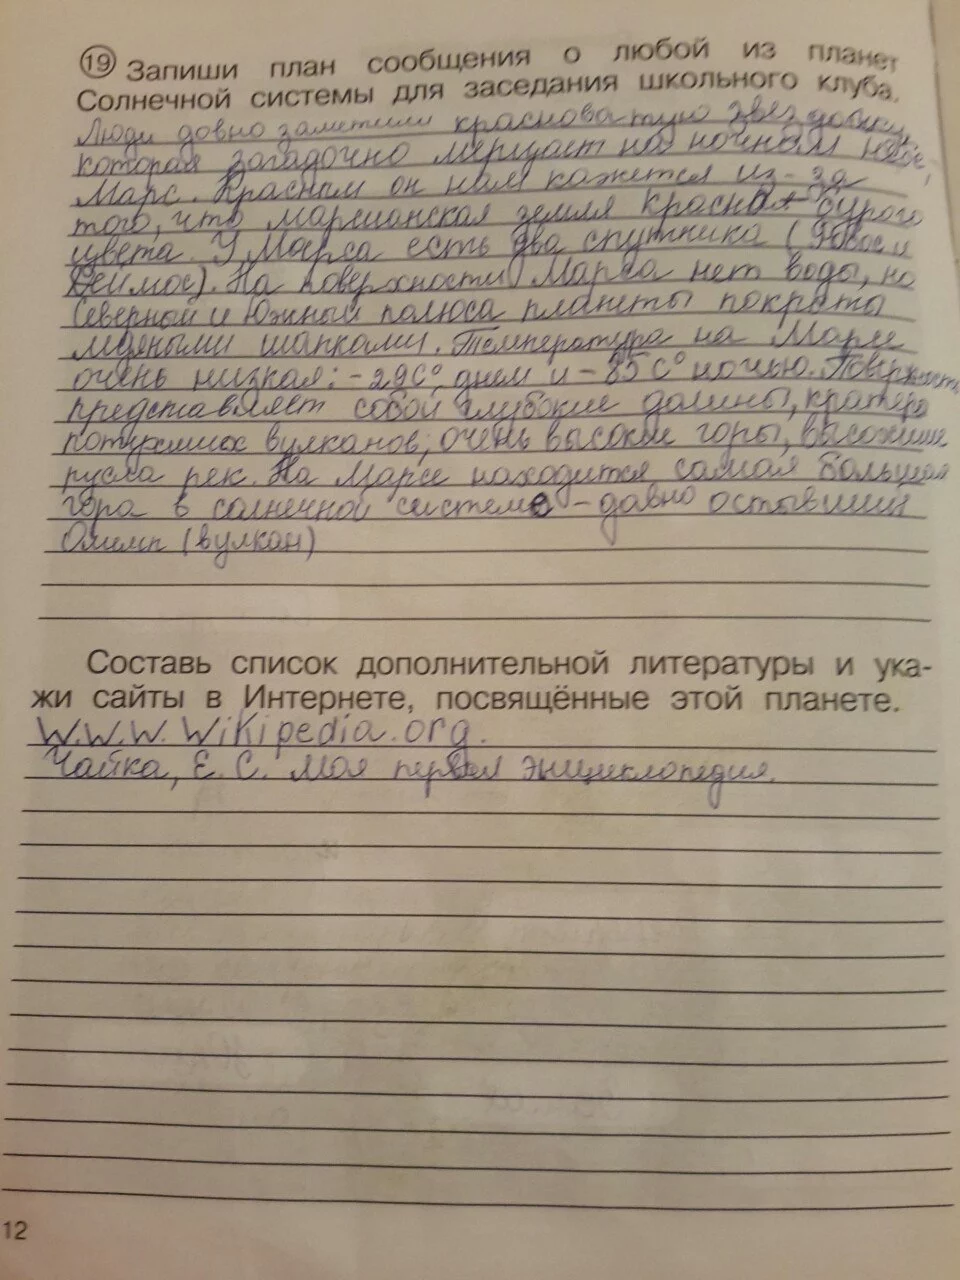 19 Запиши план сообщения о любой из планет
Солнечной системы для заседания школьного клуба.
Люди довно заметили красноватую звездочку,
которая загадочно мерцает на ночном небе,
Марс. Красным он нам кажется из-за
того, что марсианская земля красно-бурого
цвета. У Марса есть два спутника (Фобос и
Деймос). На поверхности Марса нет воды, но
Северный и Южный полюса планеты покрыты
ледяными шапками. Температура на Марсе
очень низкая: -29С° днем и -85С° ночью. Поверхность
представляет собой глубокие долины, кратеры
потухших вулканов, очень высокие горы, высохшие
русла рек. На Марсе находится самая большая
гора в солнечной системе - давно остывший
Олимп (вулкан)
Составь список дополнительной литературы и ука-
жи сайты в Интернете, посвящённые этой планете.
W.W.W. Wikipedia.org.
Чайка, Е. С. Моя первая энциклопедия.
12